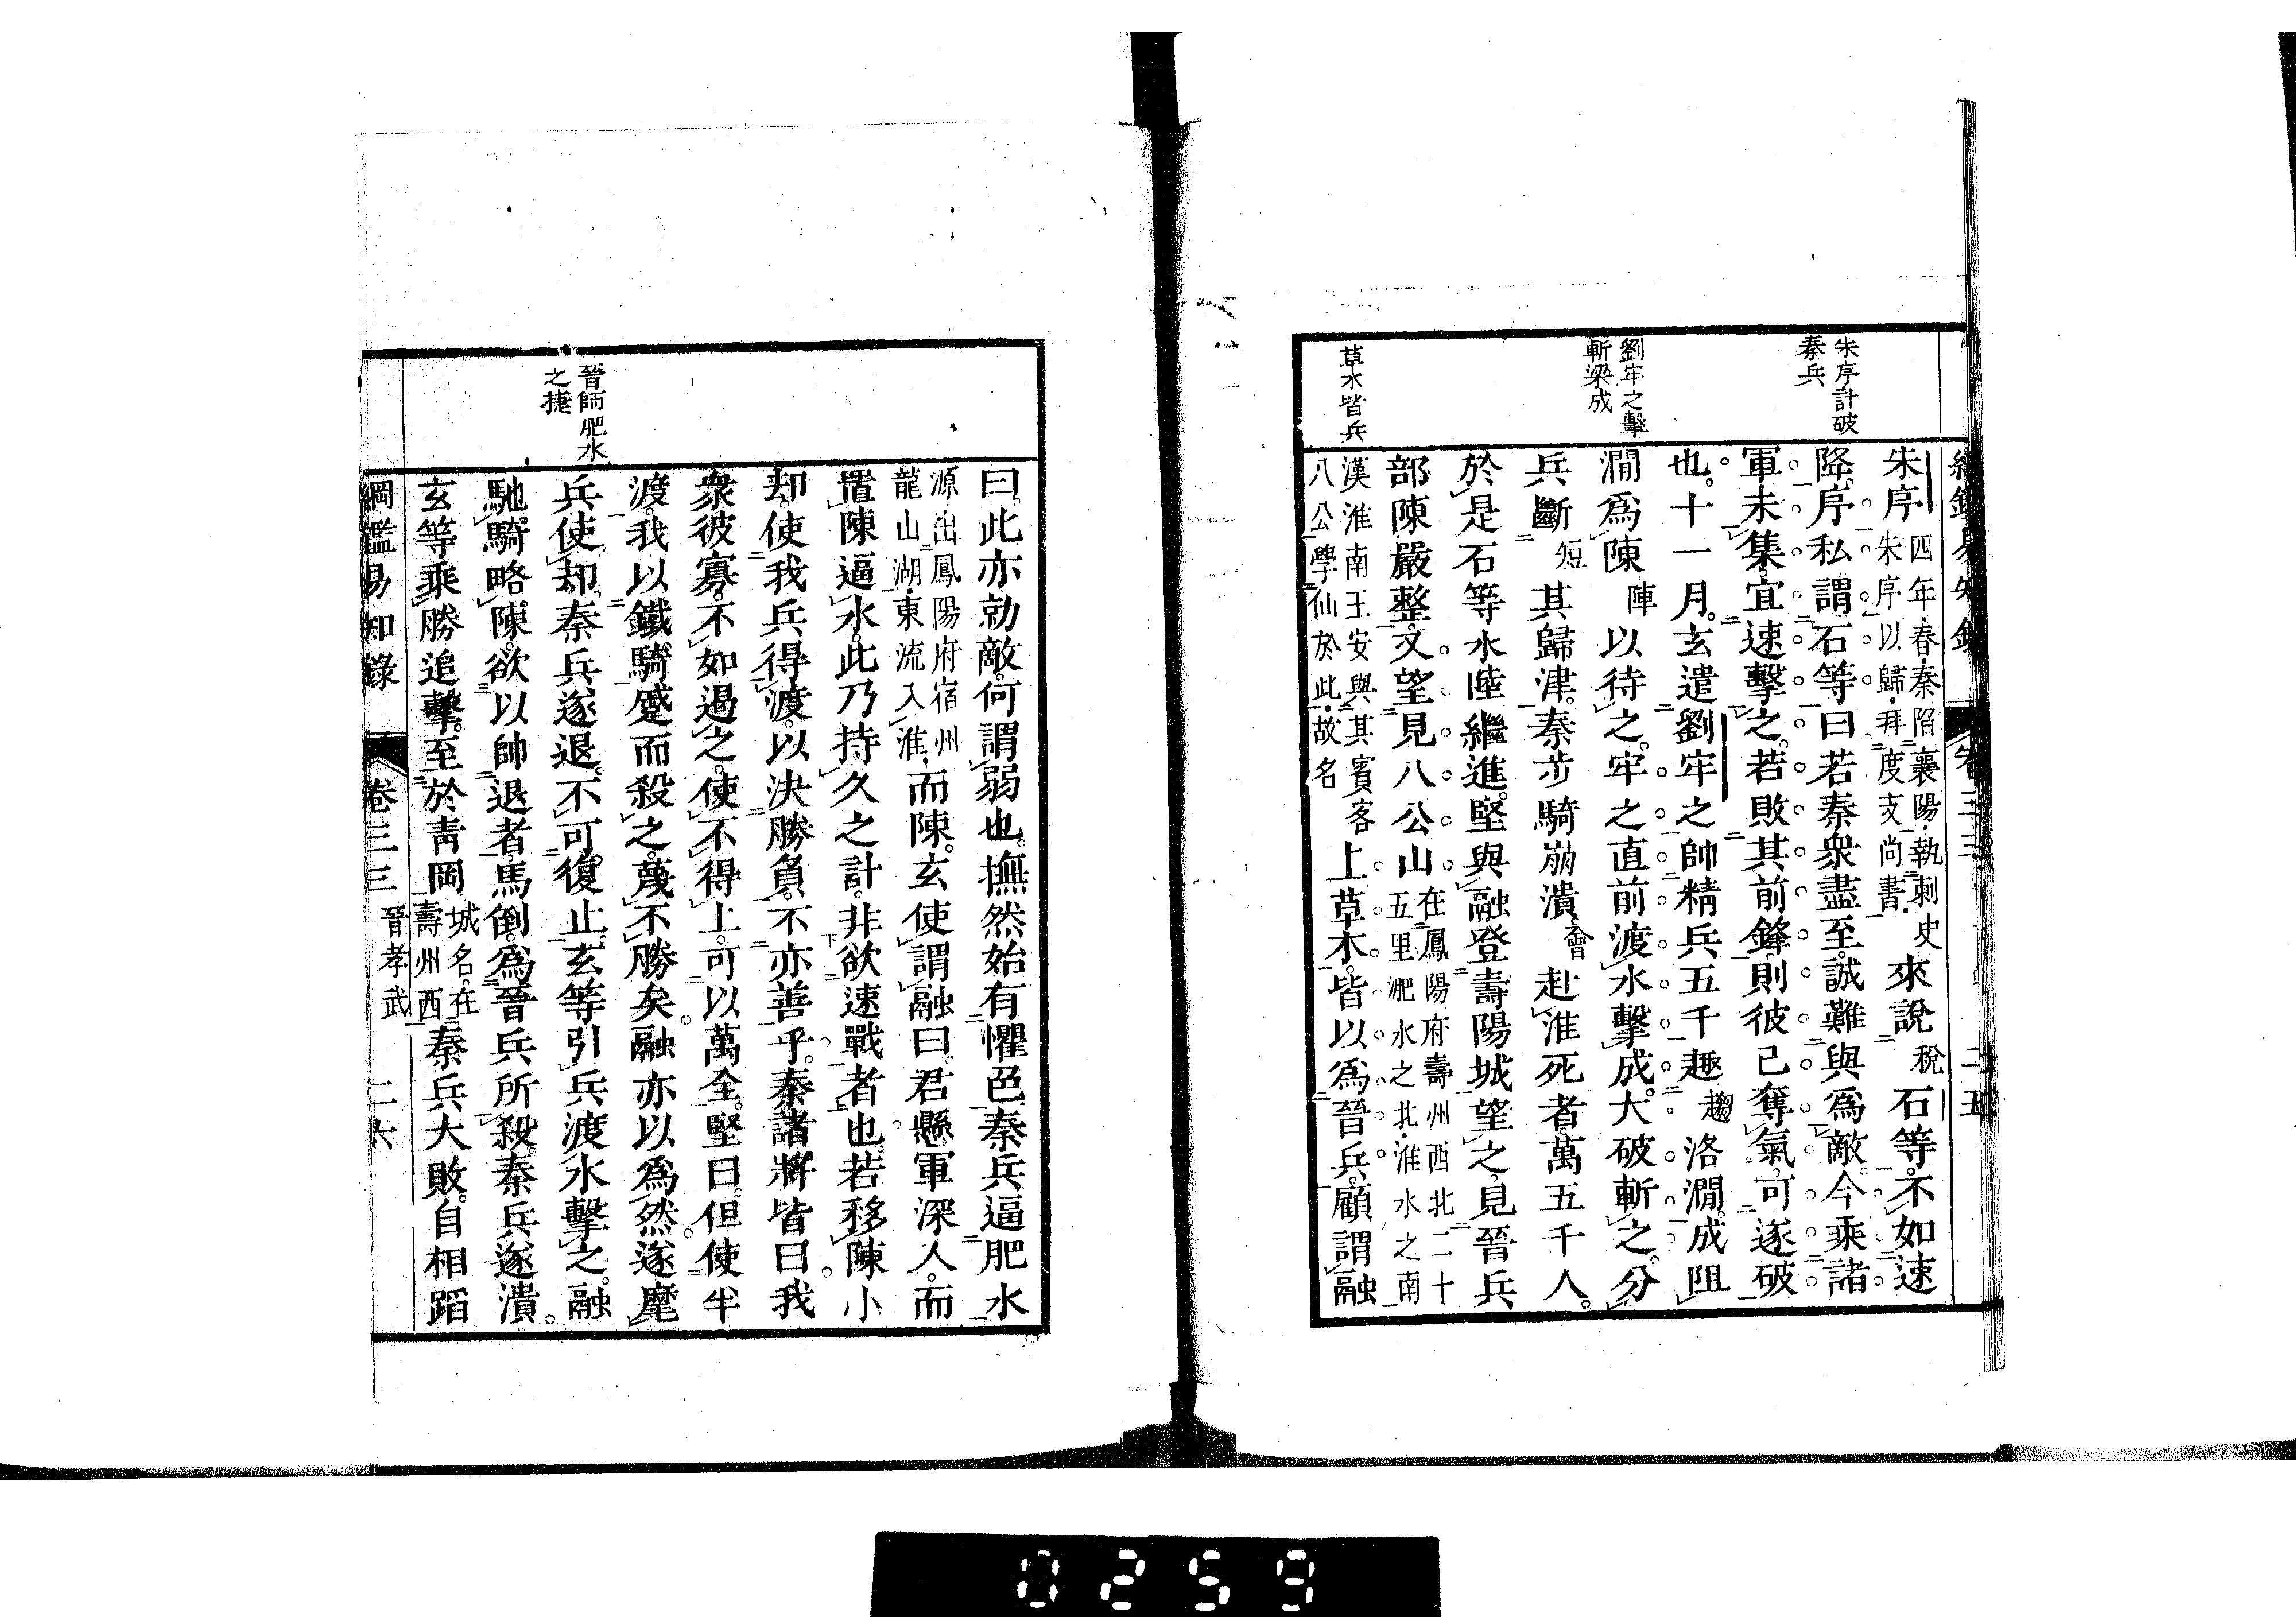 綱鑑易知錄 卷三三 二五
朱序計破
秦兵
劉牢之擊
斬梁成
草木皆兵
朱序四年春秦陷襄陽執刺史朱序以歸拜度支尚書來說稅石等不如速
降序私謂石等曰若秦衆盡至誠難與爲敵今乘諸
軍未集宜速擊之若敗其前鋒則彼已奪氣可遂破
也十一月玄遣劉牢之帥精兵五千趣趨洛澗成阻
澗爲陳陣以待之牢之直前渡水擊成大破斬之分
兵斷短其歸津秦步騎崩潰會赴淮死者萬五千人
於是石等水陸繼進堅與融登壽陽城望之見晉兵
部陳嚴整又望見八公山在鳳陽府壽州西北二十五里淝水之北淮水之南
漢淮南王安與其賓客八公學仙於此故名上草木皆以爲晉兵顧謂融
晉師肥水
之捷
曰此亦勍敵何謂弱也憮然始有懼色秦兵逼肥水
源出鳳陽府宿州龍山湖東流入淮而陳玄使謂融曰君懸軍深入而
置陳逼水此乃持久之計非欲速戰者也若移陳小
却使我兵得渡以決勝負不亦善乎秦諸將皆曰我
衆彼寡不如遏之使不得上可以萬全堅曰但使半
渡我以鐵騎蹙而殺之蔑不勝矣融亦以爲然遂麾
兵使却秦兵遂退不可復止玄等引兵渡水擊之融
馳騎略陳欲以帥退者馬倒爲晉兵所殺秦兵遂潰
玄等乘勝追擊至於青岡城名在壽州西秦兵大敗自相蹈
綱鑑易知錄 卷三三 晉孝武 二六
0259